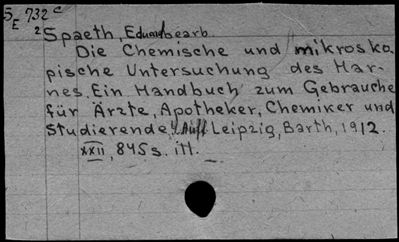 5E 732 c
2 Spaeth, Eduard bearb.
Die Chemische und mikrosko
pische Untersuchung des Har-
nes. Ein Handbuch zum Gebrauche
für Ärzte, Apotheker, Chemiker und
Studierende. Aufl Leipzig, Barth, 1912.
XXII, 845 s. ill.